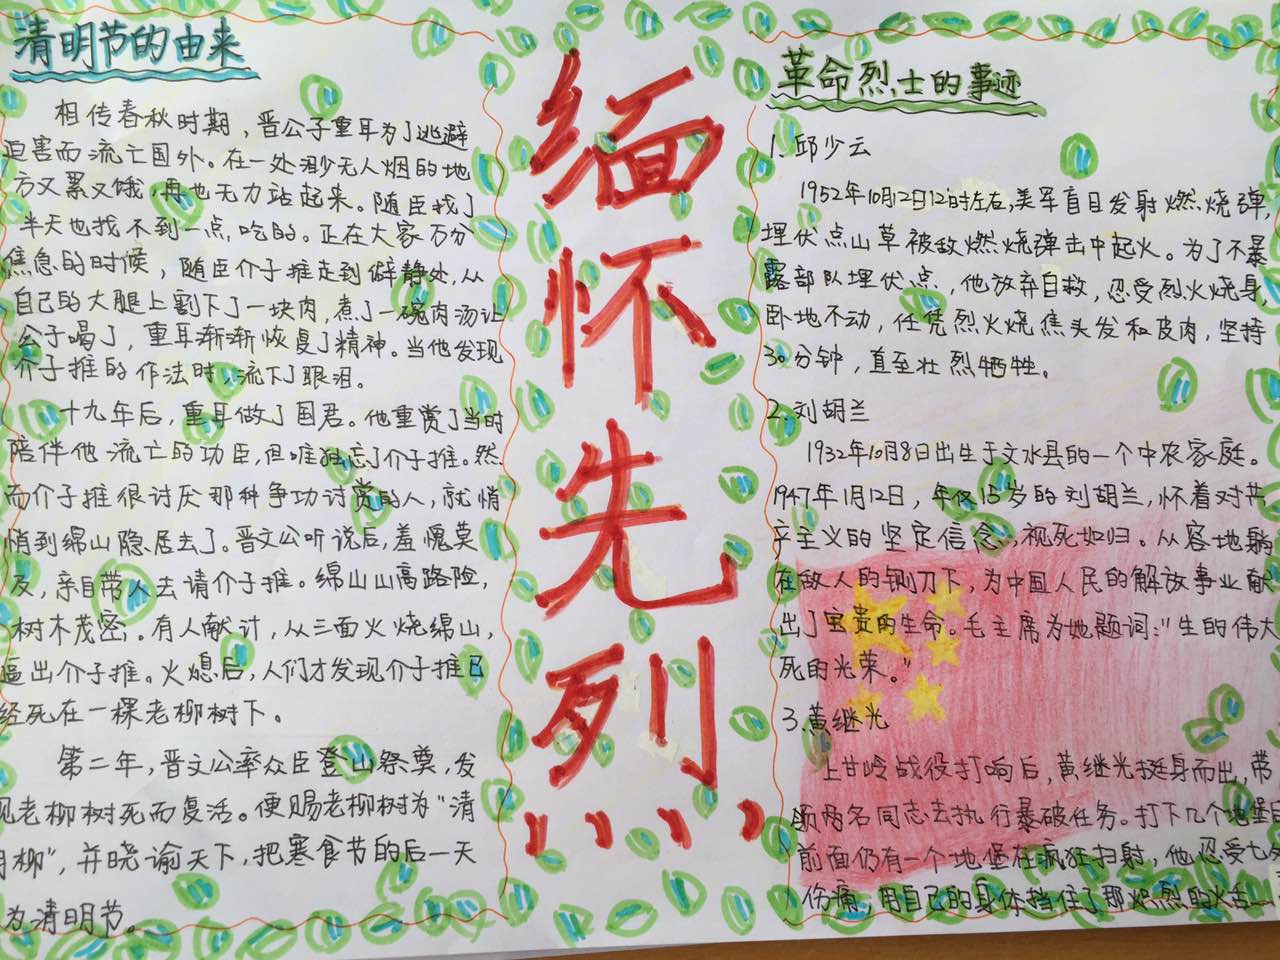 清明节的由来
相传春秋时期，晋公子重耳为了逃避
迫害而流亡国外。在一处渺无人烟的地
方又累又饿，再也无力站起来。随臣找了
半天也找不到一点吃的。正在大家万分
焦急的时候，随臣介子推走到僻静处，从
自己的大腿上割下了一块肉，煮了一碗肉汤让
公子喝了，重耳渐渐恢复了精神。当他发现
介子推的作法时，流下了眼泪。
十九年后，重耳做了国君。他重赏了当时
陪伴他流亡的功臣，但唯独忘了介子推。然
而介子推很讨厌那种争功讨赏的人，就悄
悄到绵山隐居去了。晋文公听说后，羞愧莫
及，亲自带人去请介子推。绵山山高路险，
树木茂密。有人献计，从三面火烧绵山，
逼出介子推。火熄后，人们才发现介子推已
经死在一棵老柳树下。
第二年，晋文公率众臣登山祭奠，发
现老柳树死而复活。便赐老柳树为“清
明柳”，并晓谕天下，把寒食节的后一天
为清明节。
缅怀先烈
革命烈士的事迹
1.邱少云
1952年10月12日12时左右，美军盲目发射燃烧弹，
埋伏点山草被敌燃烧弹击中起火。为了不暴
露部队埋伏点，他放弃自救，忍受烈火烧身，
卧地不动，任凭烈火烧焦头发和皮肉，坚持
30分钟，直至壮烈牺牲。
2.刘胡兰
1932年10月8日出生于文水县的一个中农家庭。
1947年1月12日，年仅15岁的刘胡兰，怀着对共
产主义的坚定信念，视死如归。从容地躺
在敌人的铡刀下，为中国人民的解放事业献
出了宝贵的生命。毛主席为她题词：“生的伟大
死的光荣。”
3.黄继光
上甘岭战役打响后，黄继光挺身而出，带
领两名同志去执行暴破任务。打下几个地堡后
前面仍有一个地堡在疯狂扫射，他忍受七处
伤痛，用自己的身体挡住了那炽烈的火舌……